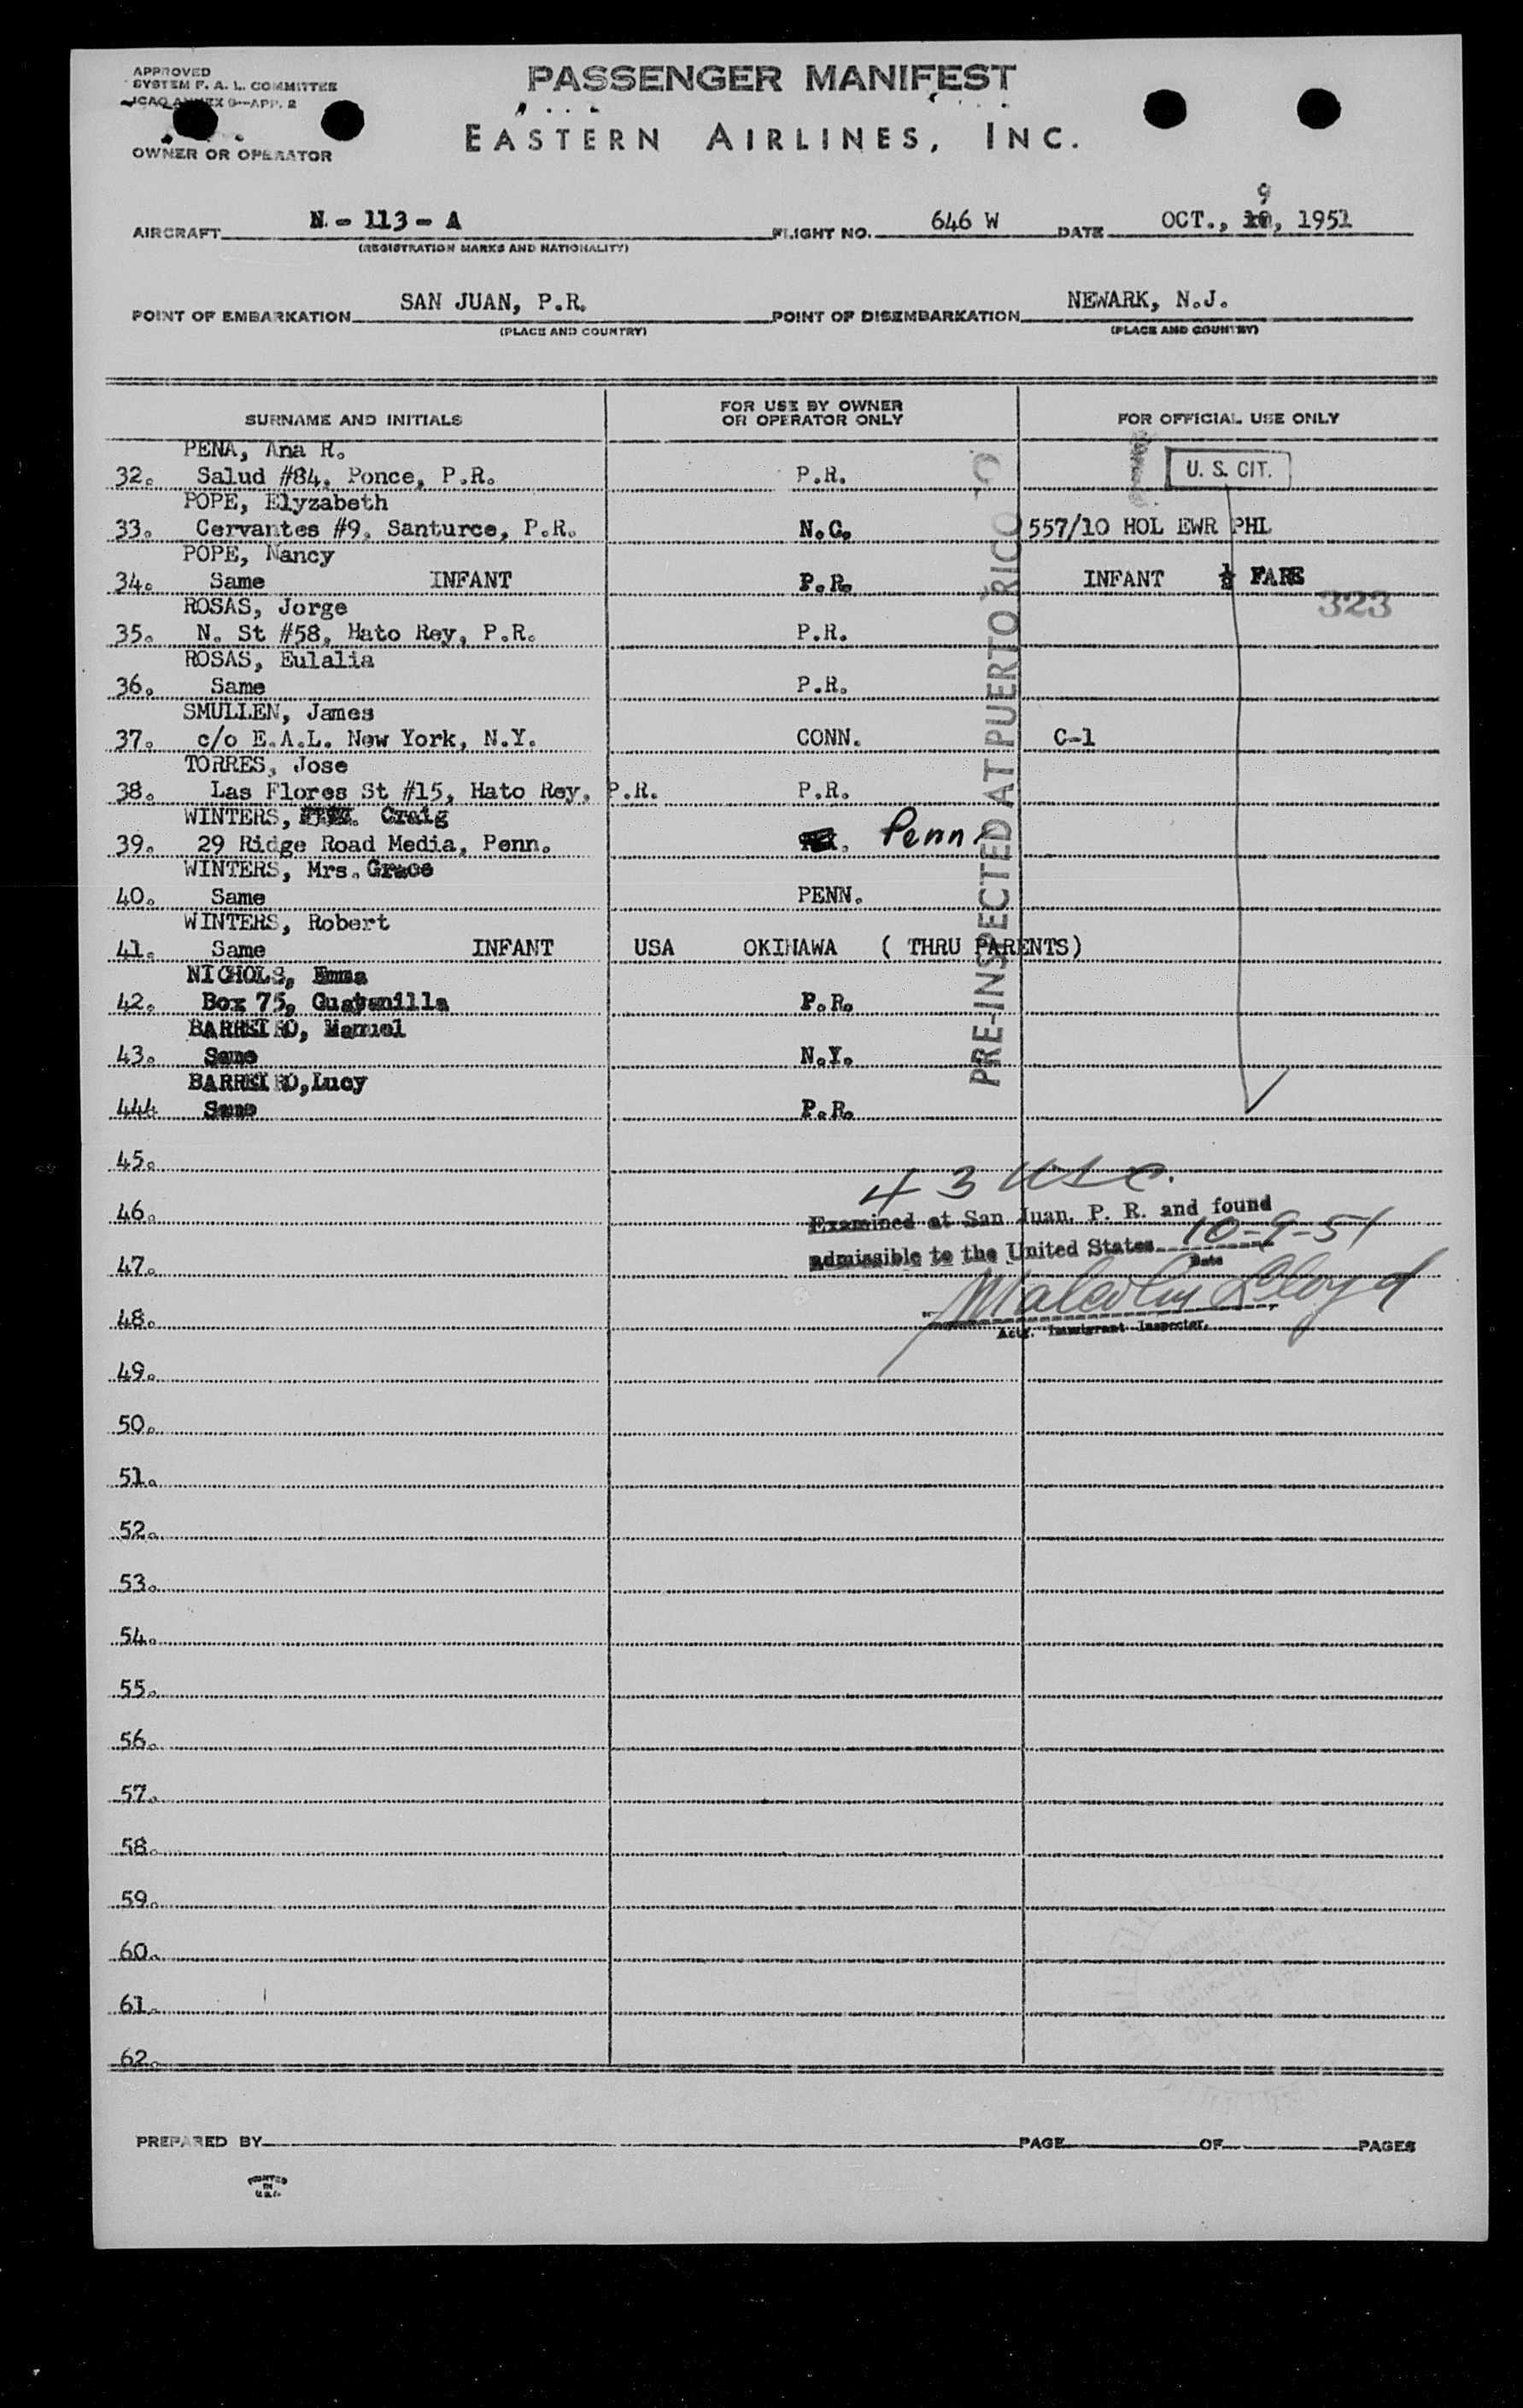 APPROVED
SYSTEM F. A. L. COMMITTEE
ICAO ANNEX 9—APP. 2
PASSENGER MANIFEST
EASTERN AIRLINES, INC.
OWNER OR OPERATOR
9
AIRCRAFT N - 113 - A FLIGHT NO. 646 W DATE OCT., 10, 1951
(REGISTRATION MARKS AND NATIONALITY)
POINT OF EMBARKATION SAN JUAN, P.R. POINT OF DISEMBARKATION NEWARK, N.J.
(PLACE AND COUNTRY) (PLACE AND COUNTRY)
SURNAME AND INITIALS FOR USE BY OWNER OR OPERATOR ONLY FOR OFFICIAL USE ONLY
PENA, Ana R.
32. Salud #84, Ponce, P.R. P.R. U. S. CIT.
POPE, Elyzabeth
33. Cervantes #9, Santurce, P.R. N.C. 557/10 HOL EWR PHL
POPE, Nancy
34. Same INFANT P.R. INFANT ½ FARE
323
ROSAS, Jorge
35. N. St #58, Hato Rey, P.R. P.R.
ROSAS, Eulalia
36. Same P.R.
SMULLEN, James
37. c/o E.A.L. New York, N.Y. CONN. C-1
TORRES, Jose
38. Las Flores St #15, Hato Rey, P.R. P.R.
WINTERS, Craig
39. 29 Ridge Road Media, Penn. Penn.
WINTERS, Mrs. Grace
40. Same PENN.
WINTERS, Robert
41. Same INFANT USA OKINAWA ( THRU PARENTS)
NICHOLS, Emma
42. Box 75, Guayanilla P.R.
BARREIRO, Manuel
43. Same N.Y.
BARREIRO, Lucy
444 Same P.R.
PRE-INSPECTED AT PUERTO RICO
45.
43 USC.
46. Examined at San Juan, P. R. and found
47. admissible to the United States 10-9-51
Date
Malcolm Lloyd
48. Actg. Immigrant Inspector.
49.
50.
51.
52.
53.
54.
55.
56.
57.
58.
59.
60.
61.
62.
PREPARED BY PAGE OF PAGES
PRINTED
IN
U.S.A.